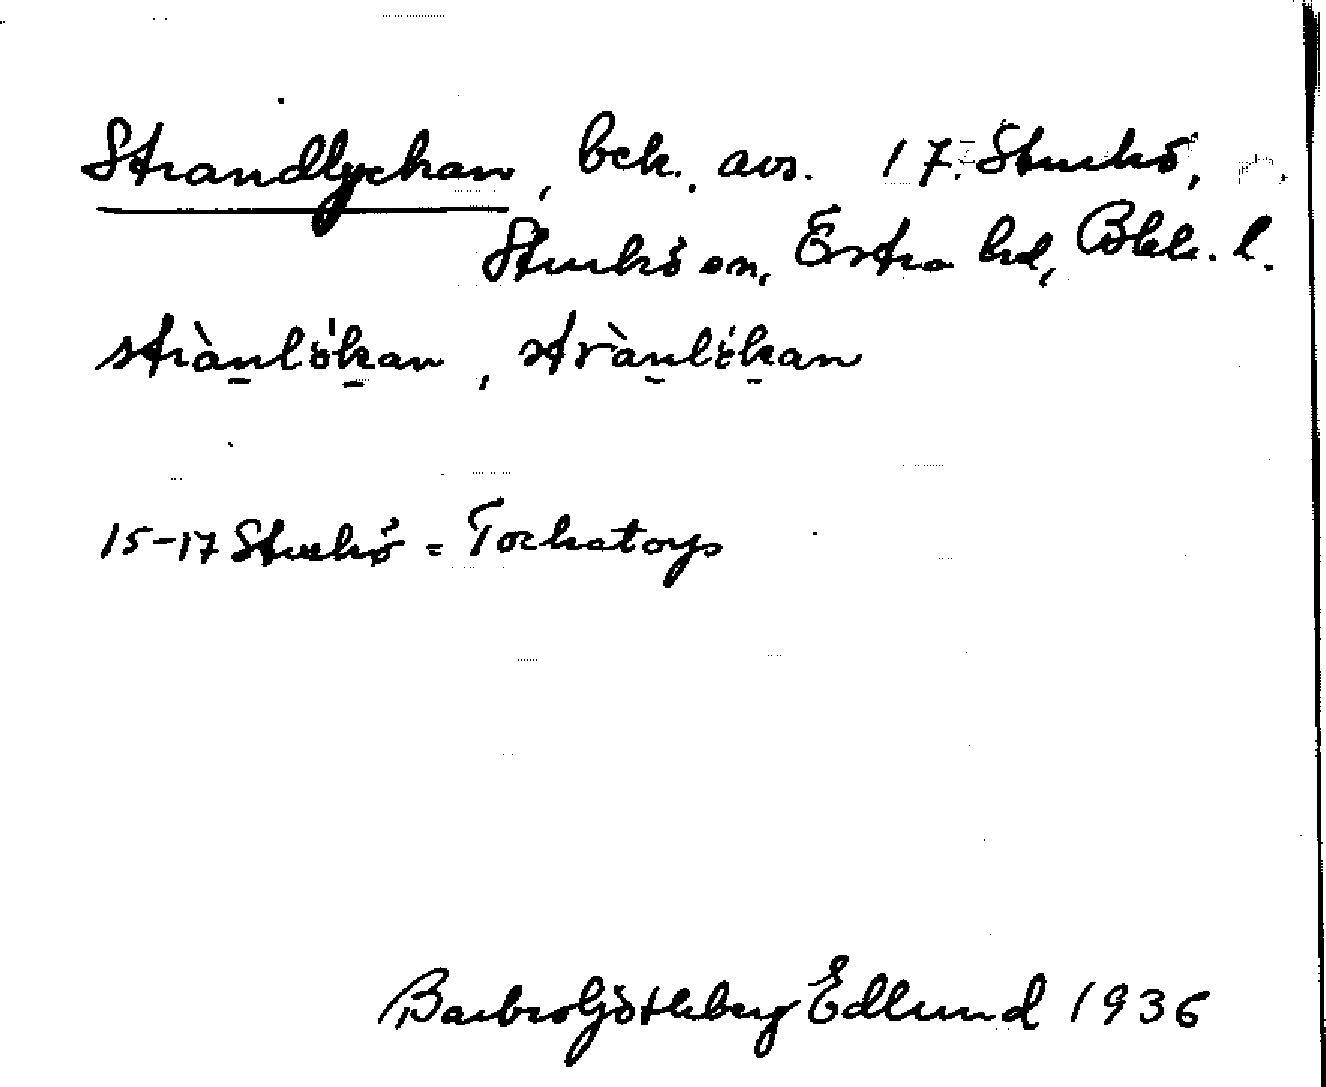 Strandlyckan, bek. avs. 17 Sturkö,
Sturkö sn, Östra hd, Blek. l.
strànlö́kan, strànlö́kan
15-17 Sturkö = Tockatorp
Barbro Götleberg Edlund 1936